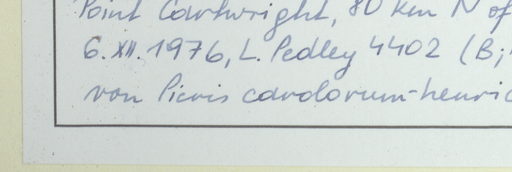 Point Cartwright, 80 km N of
6.XII.1976, L. Pedley 4402 (B;
von Picris carolorum-henric